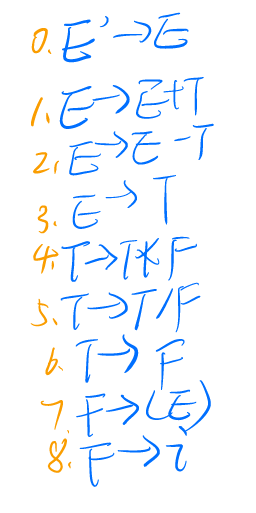 0. E'→E
1. E→E+T
2. E→E-T
3. E→T
4. T→T*F
5. T→T/F
6. T→F
7. F→(E)
8. F→i